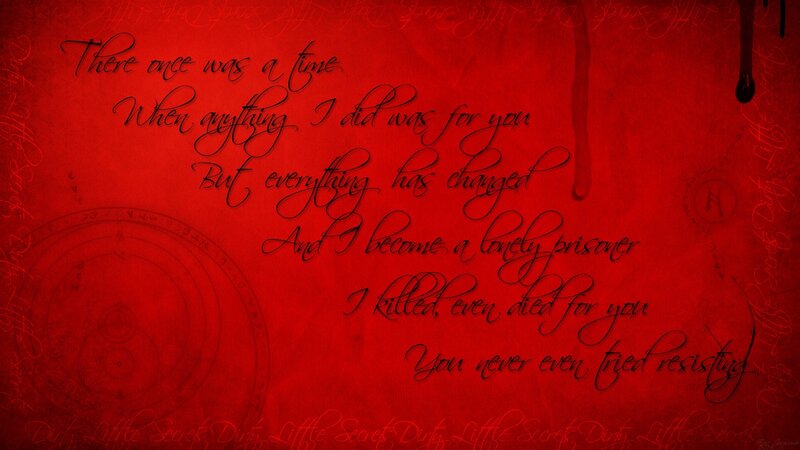 There once was a time
When anything I did was for you
But everything has changed
And I become a lonely prisoner
I killed, even died for you
You never even tried resisting
Dirty Little Secrets Dirty Little Secrets Dirty Little Secrets